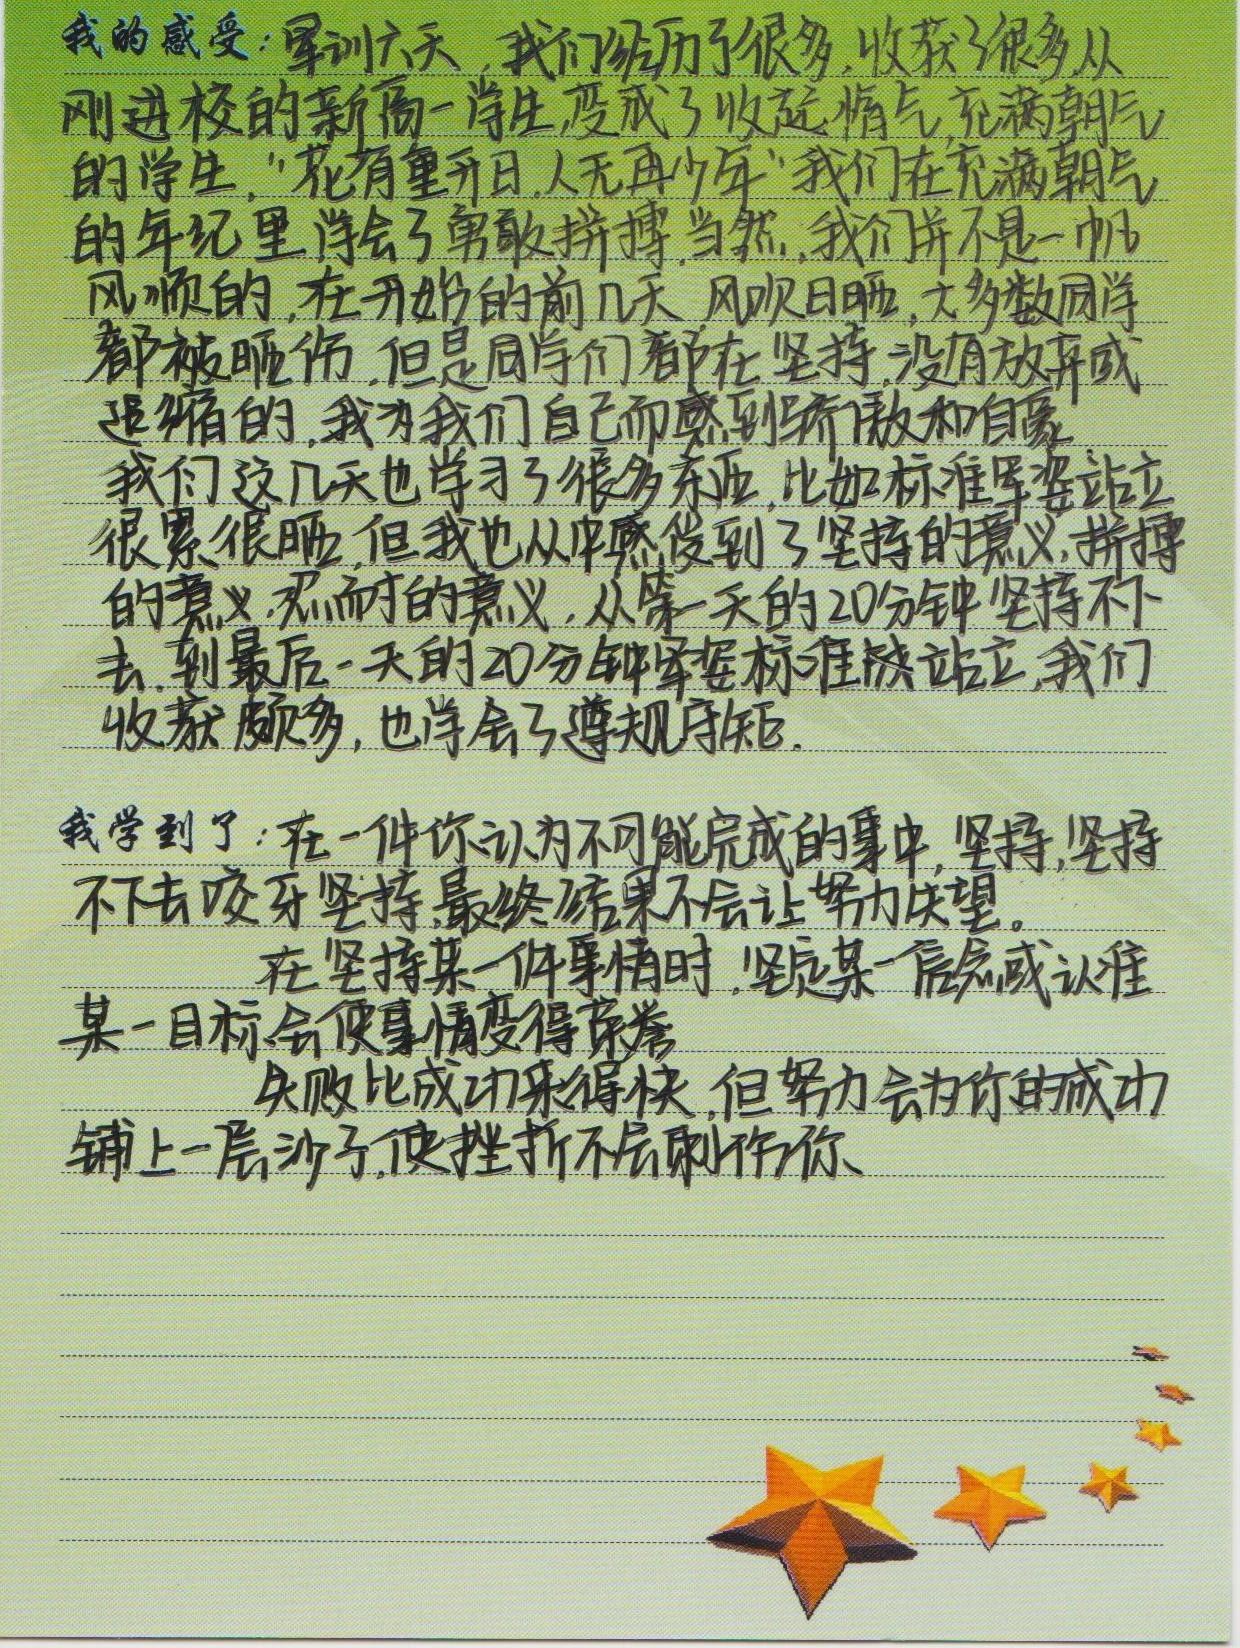 我的感受：军训六天，我们经历了很多，收获了很多，从
刚进校的新高一学生，变成了收起惰气，充满朝气
的学生，“花有重开日，人无再少年”我们在充满朝气
的年纪里学会了勇敢拼搏，当然，我们并不是一帆
风顺的，在开始的前几天，风吹日晒，大多数同学
都被晒伤，但是同学们都在坚持，没有放弃或
退缩的，我为我们自己而感到骄傲和自豪
我们这几天也学习了很多东西，比如标准军姿站立
很累很晒，但我也从中感受到了坚持的意义，拼搏
的意义，忍耐的意义，从第一天的20分钟坚持不下
去，到最后一天的20分钟军姿标准站立，我们
收获颇多，也学会了遵规守矩.
我学到了：在一件你认为不可能完成的事中，坚持，坚持
不下去咬牙坚持，最终结果不会让努力失望。
在坚持某一件事情时，坚定某一信念或认准
某一目标，会使事情变得荣誉
失败比成功来得快，但努力会为你的成功
铺上一层沙子，使挫折不会刺伤你、